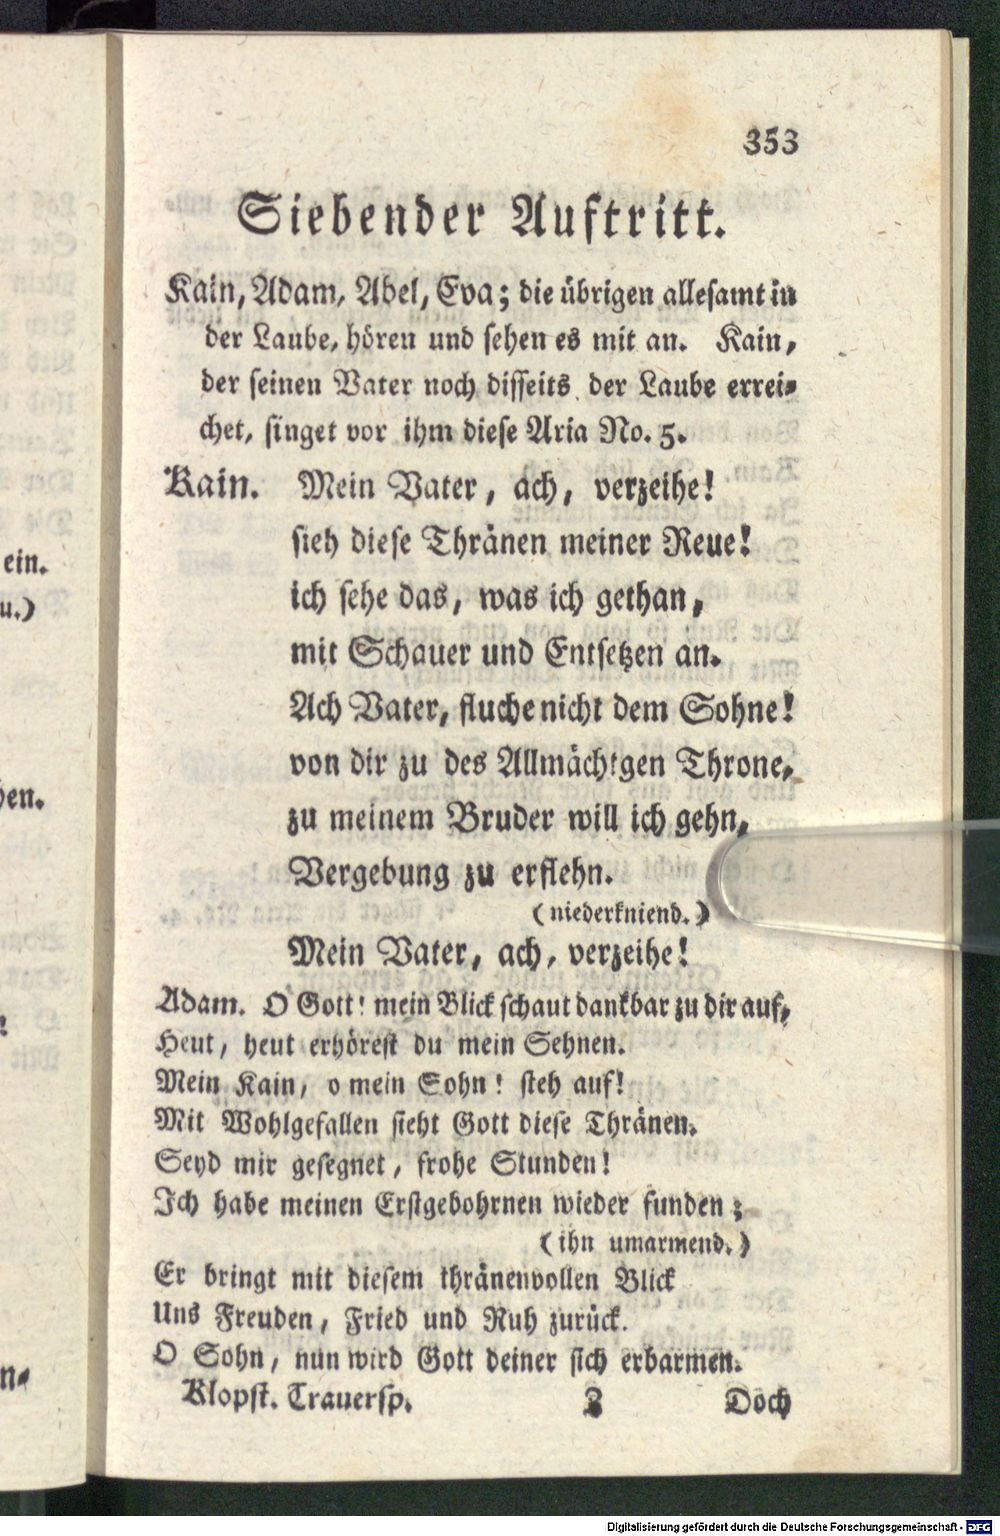 353
Siebender Auftritt.
Kain, Adam, Abel, Eva; die übrigen allesamt in
der Laube, hören und sehen es mit an. Kain,
der seinen Vater noch disseits der Laube errei-
chet, singet vor ihm diese Aria No. 5.
Kain. Mein Vater, ach, verzeihe!
sieh diese Thränen meiner Reue!
ich sehe das, was ich gethan,
mit Schauer und Entsetzen an.
Ach Vater, fluche nicht dem Sohne!
von dir zu des Allmächtgen Throne,
zu meinem Bruder will ich gehn,
Vergebung zu erflehn.
(niederkniend.)
Mein Vater, ach, verzeihe!
Adam. O Gott! mein Blick schaut dankbar zu dir auf,
Heut, heut erhörest du mein Sehnen.
Mein Kain, o mein Sohn! steh auf!
Mit Wohlgefallen sieht Gott diese Thränen.
Seyd mir gesegnet, frohe Stunden!
Ich habe meinen Erstgebohrnen wieder funden;
(ihn umarmend.)
Er bringt mit diesem thränenvollen Blick
Uns Freuden, Fried und Ruh zurück.
O Sohn, nun wird Gott deiner sich erbarmen.
Klopst. Trauersp. Z Doch
ein.
u.)
hen.
!
n-
Digitalisierung gefördert durch die Deutsche Forschungsgemeinschaft - DFG